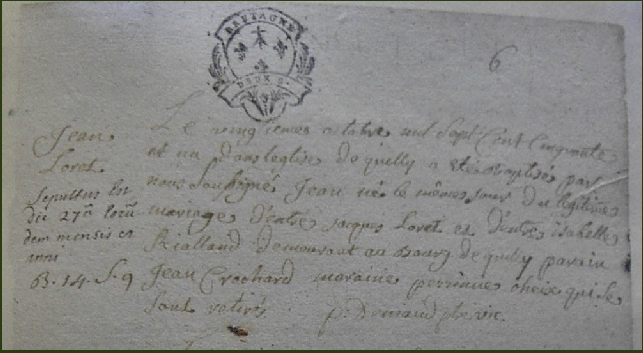 BRETAGNE
DEUX S.
6
Jean
Loret
Sepultus est
die 27a
dem mensis et
anni
B. 14. S. 9
Le vingtieme octobre mil Sept Cent Cinquante
et un dans leglise de quilly a eté baptisé par
nous Soussigné Jean né le même jour du legitime
mariage d'entre jacques Loret et d'entre isabelle
Rialland demeurant au bourg de quilly parain
Jean Crochard maraine perrinne qui Se
Sont retirés